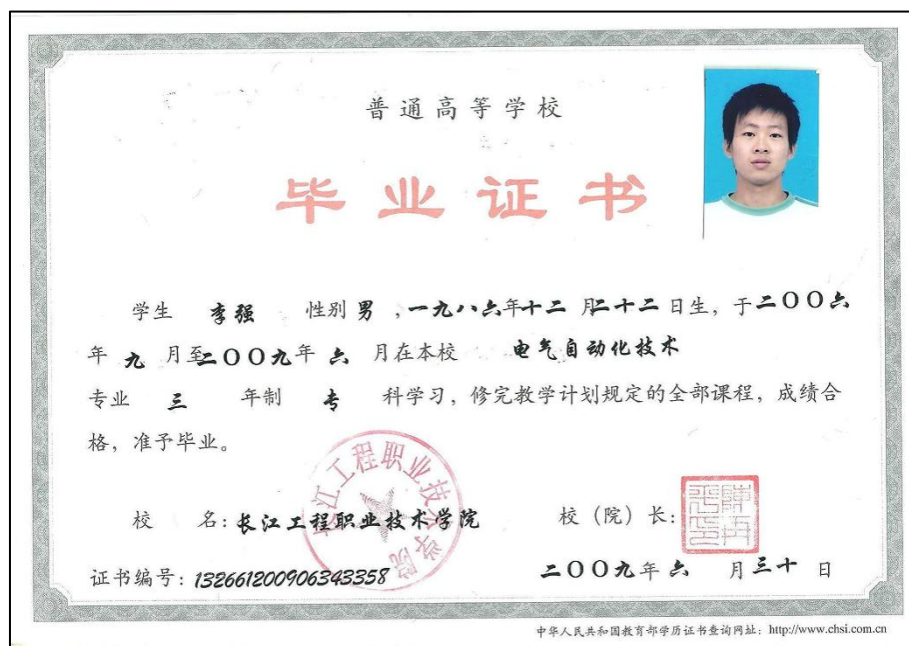 普通高等学校
毕业证书
学生 李强 性别 男 ,一九八六年十二月二十二日生，于二〇〇六
年 九 月至二〇〇九年 六 月在本校 电气自动化技术
专业 三 年制 专 科学习，修完教学计划规定的全部课程，成绩合
格，准予毕业。
长江工程职业技术学院
校 名：长江工程职业技术学院 校（院）长：
证书编号：132661200906343358 二〇〇九年 六 月三十日
中华人民共和国教育部学历证书查询网址：http://www.chsi.com.cn